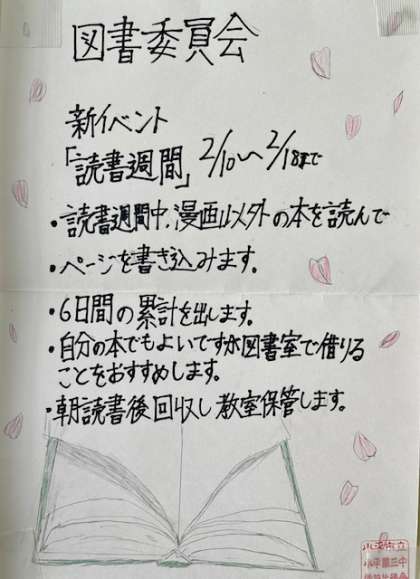 図書委員会
新イベント
「読書週間」2/10〜2/18まで
・読書週間中、漫画以外の本を読んで
・ページを書き込みます。
・6日間の累計を出します。
・自分の本でもよいですが図書室で借りる
ことをおすすめします。
・朝読書後回収し教室保管します。